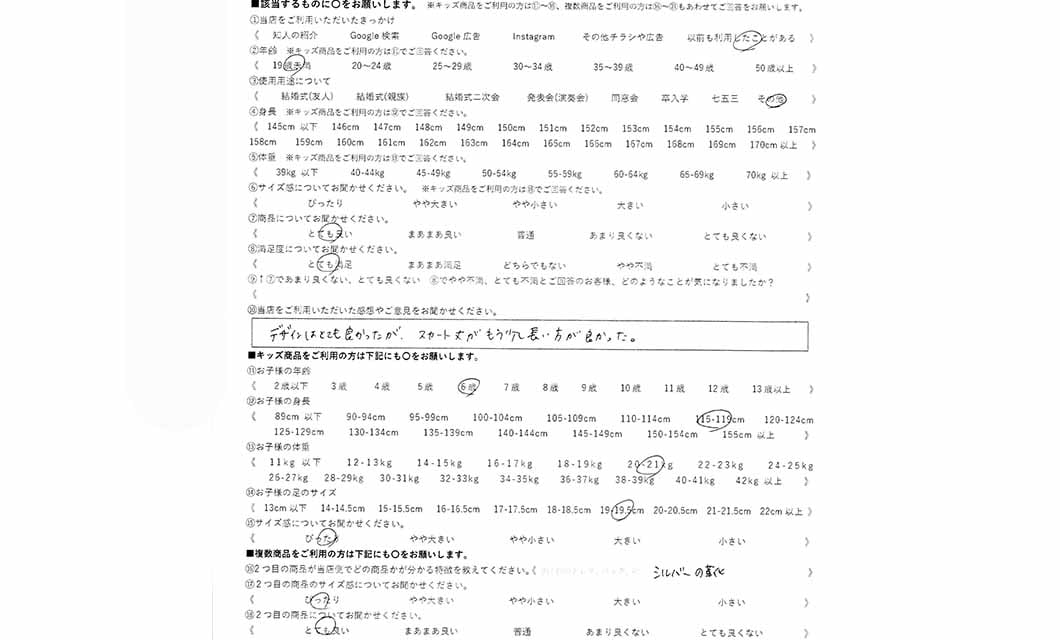 ■該当するものに〇をお願いします。 ※キッズ商品をご利用の方は⑪～⑮、複数商品をご利用の方は⑯～⑱もあわせてご回答をお願いします。
①当店をご利用いただいたきっかけ
《 知人の紹介 Google 検索 Google 広告 Instagram その他チラシや広告 以前も利用したことがある 》
②年齢 ※キッズ商品をご利用の方は⑪でご回答ください。
《 19歳未満 20～24歳 25～29歳 30～34歳 35～39歳 40～49歳 50歳以上 》
③使用用途について
《 結婚式(友人) 結婚式(親族) 結婚式二次会 発表会(演奏会) 同窓会 卒入学 七五三 その他 》
④身長 ※キッズ商品をご利用の方は⑫でご回答ください。
《 145cm 以下 146cm 147cm 148cm 149cm 150cm 151cm 152cm 153cm 154cm 155cm 156cm 157cm
158cm 159cm 160cm 161cm 162cm 163cm 164cm 165cm 166cm 167cm 168cm 169cm 170cm 以上 》
⑤体重 ※キッズ商品をご利用の方は⑬でご回答ください。
《 39kg 以下 40-44kg 45-49kg 50-54kg 55-59kg 60-64kg 65-69kg 70kg 以上 》
⑥サイズ感についてお聞かせください。 ※キッズ商品をご利用の方は⑮でご回答ください。
《 ぴったり やや大きい やや小さい 大きい 小さい 》
⑦商品についてお聞かせください。
《 とても良い まあまあ良い 普通 あまり良くない とても良くない 》
⑧満足度についてお聞かせください。
《 とても満足 まあまあ満足 どちらでもない やや不満 とても不満 》
⑨↑⑦であまり良くない、とても良くない ⑧でやや不満、とても不満とご回答のお客様、どのようなことが気になりましたか？
《 》
⑩当店をご利用いただいた感想やご意見をお聞かせください。
デザインはとても良かったが、スカート丈がもう少し長い方が良かった。
■キッズ商品をご利用の方は下記にも〇をお願いします。
⑪お子様の年齢
《 2歳以下 3歳 4歳 5歳 6歳 7歳 8歳 9歳 10歳 11歳 12歳 13歳以上 》
⑫お子様の身長
《 89cm 以下 90-94cm 95-99cm 100-104cm 105-109cm 110-114cm 115-119cm 120-124cm
125-129cm 130-134cm 135-139cm 140-144cm 145-149cm 150-154cm 155cm 以上 》
⑬お子様の体重
《 11kg 以下 12-13kg 14-15kg 16-17kg 18-19kg 20-21kg 22-23kg 24-25kg
26-27kg 28-29kg 30-31kg 32-33kg 34-35kg 36-37kg 38-39kg 40-41kg 42kg 以上 》
⑭お子様の足のサイズ
《 13cm以下 14-14.5cm 15-15.5cm 16-16.5cm 17-17.5cm 18-18.5cm 19-19.5cm 20-20.5cm 21-21.5cm 22cm以上 》
⑮サイズ感についてお聞かせください。
《 ぴったり やや大きい やや小さい 大きい 小さい 》
■複数商品をご利用の方は下記にも〇をお願いします。
⑯2つ目の商品が当店側でどの商品かが分かる特徴を教えてください。《 シルバーの革靴 》
⑰2つ目の商品のサイズ感についてお聞かせください。
《 ぴったり やや大きい やや小さい 大きい 小さい 》
⑱2つ目の商品についてお聞かせください。
《 とても良い まあまあ良い 普通 あまり良くない とても良くない 》